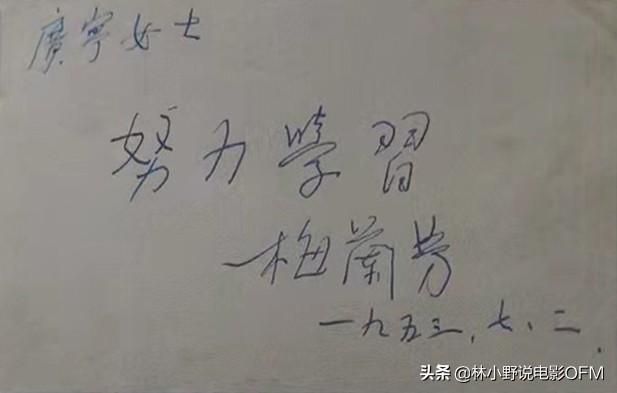 廣寧女士
努力學習
梅蘭芳
一九五三，七、二．
头条 @林小野说电影OFM